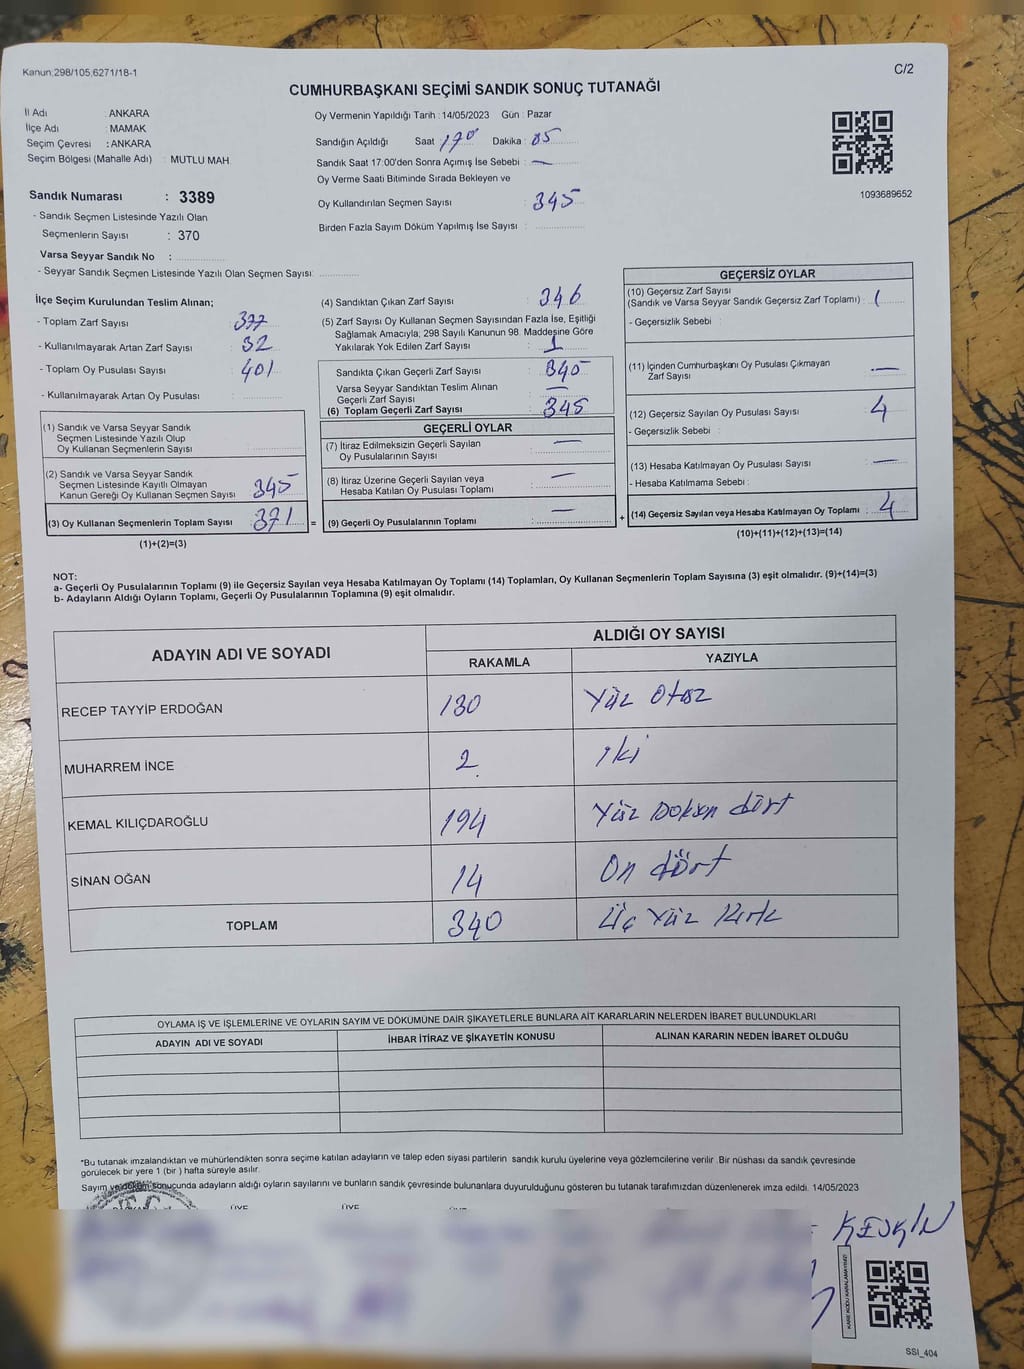 Kanun:298/105,6271/18-1
C/2
CUMHURBAŞKANI SEÇİMİ SANDIK SONUÇ TUTANAĞI
İl Adı : ANKARA
İlçe Adı : MAMAK
Seçim Çevresi : ANKARA
Seçim Bölgesi (Mahalle Adı) : MUTLU MAH
Sandık Numarası : 3389
- Sandık Seçmen Listesinde Yazılı Olan
Seçmenlerin Sayısı : 370
Varsa Seyyar Sandık No :
- Seyyar Sandık Seçmen Listesinde Yazılı Olan Seçmen Sayısı:
Oy Vermenin Yapıldığı Tarih : 14/05/2023 Gün : Pazar
Sandığın Açıldığı Saat Dakika : 05
Sandık Saat 17:00'den Sonra Açımış İse Sebebi : —
Oy Verme Saati Bitiminde Sırada Bekleyen ve
Oy Kullandırılan Seçmen Sayısı : 345
Birden Fazla Sayım Döküm Yapılmış İse Sayısı :
1093689652
İlçe Seçim Kurulundan Teslim Alınan;
- Toplam Zarf Sayısı :
- Kullanılmayarak Artan Zarf Sayısı : 32
- Toplam Oy Pusulası Sayısı : 401
- Kullanılmayarak Artan Oy Pusulası :
(1) Sandık ve Varsa Seyyar Sandık
Seçmen Listesinde Yazılı Olup
Oy Kullanan Seçmenlerin Sayısı
(2) Sandık ve Varsa Seyyar Sandık
Seçmen Listesinde Kayıtlı Olmayan
Kanun Gereği Oy Kullanan Seçmen Sayısı : 345
(3) Oy Kullanan Seçmenlerin Toplam Sayısı : 371
(1)+(2)=(3)
(4) Sandıktan Çıkan Zarf Sayısı : 346
(5) Zarf Sayısı Oy Kullanan Seçmen Sayısından Fazla İse, Eşitliği
Sağlamak Amacıyla, 298 Sayılı Kanunun 98. Maddesine Göre
Yakılarak Yok Edilen Zarf Sayısı : 1
Sandıkta Çıkan Geçerli Zarf Sayısı : 345
Varsa Seyyar Sandıktan Teslim Alınan
Geçerli Zarf Sayısı : —
(6) Toplam Geçerli Zarf Sayısı : 345
GEÇERLİ OYLAR
(7) İtiraz Edilmeksizin Geçerli Sayılan
Oy Pusulalarının Sayısı : —
(8) İtiraz Üzerine Geçerli Sayılan veya
Hesaba Katılan Oy Pusulası Toplamı : —
= (9) Geçerli Oy Pusulalarının Toplamı : —
GEÇERSİZ OYLAR
(10) Geçersiz Zarf Sayısı
(Sandık ve Varsa Seyyar Sandık Geçersiz Zarf Toplamı) : 1
- Geçersizlik Sebebi :
(11) İçinden Cumhurbaşkanı Oy Pusulası Çıkmayan
Zarf Sayısı : —
(12) Geçersiz Sayılan Oy Pusulası Sayısı : 4
- Geçersizlik Sebebi :
(13) Hesaba Katılmayan Oy Pusulası Sayısı : —
- Hesaba Katılmama Sebebi :
+ (14) Geçersiz Sayılan veya Hesaba Katılmayan Oy Toplamı : 4
(10)+(11)+(12)+(13)=(14)
NOT:
a- Geçerli Oy Pusulalarının Toplamı (9) ile Geçersiz Sayılan veya Hesaba Katılmayan Oy Toplamı (14) Toplamları, Oy Kullanan Seçmenlerin Toplam Sayısına (3) eşit olmalıdır. (9)+(14)=(3)
b- Adayların Aldığı Oyların Toplamı, Geçerli Oy Pusulalarının Toplamına (9) eşit olmalıdır.
ADAYIN ADI VE SOYADI
ALDIĞI OY SAYISI
RAKAMLA YAZIYLA
RECEP TAYYİP ERDOĞAN 130 Yüz Otuz
MUHARREM İNCE 2 iki
KEMAL KILIÇDAROĞLU 194 Yüz Doksan dört
SİNAN OĞAN 14 On dört
TOPLAM 340 Üç Yüz Kırk
OYLAMA İŞ VE İŞLEMLERİNE VE OYLARIN SAYIM VE DÖKÜMÜNE DAİR ŞİKAYETLERLE BUNLARA AİT KARARLARIN NELERDEN İBARET BULUNDUKLARI
ADAYIN ADI VE SOYADI İHBAR İTİRAZ VE ŞİKAYETİN KONUSU ALINAN KARARIN NEDEN İBARET OLDUĞU
*Bu tutanak imzalandıktan ve mühürlendikten sonra seçime katılan adayların ve talep eden siyasi partilerin sandık kurulu üyelerine veya gözlemcilerine verilir .Bir nüshası da sandık çevresinde
görülecek bir yere 1 (bir ) hafta süreyle asılır.
Sayım ve döküm sonucunda adayların aldığı oyların sayılarını ve bunların sandık çevresinde bulunanlara duyurulduğunu gösteren bu tutanak tarafımızdan düzenlenerek imza edildi. 14/05/2023
ÜYE ÜYE
KESKİN
KARE KODU KARALAMAYINIZ!
SSI_404